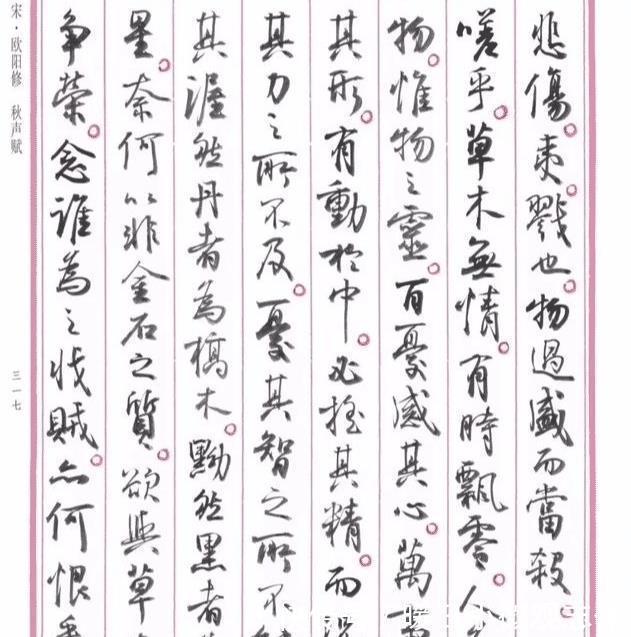 悲傷。夷。戮也。物過盛而當殺
嗟乎。草木無情。有時飄零。人
物。惟物之靈。百憂感其心。萬
其形。有動於中。必搖其精。而
其力之所不及。憂其智之所不
其渥然丹者為槁木。黝然黑者
星。奈何以非金石之質。欲與草
争榮。念誰為之戕賊。亦何恨
宋·欧阳修 秋声赋
三一七